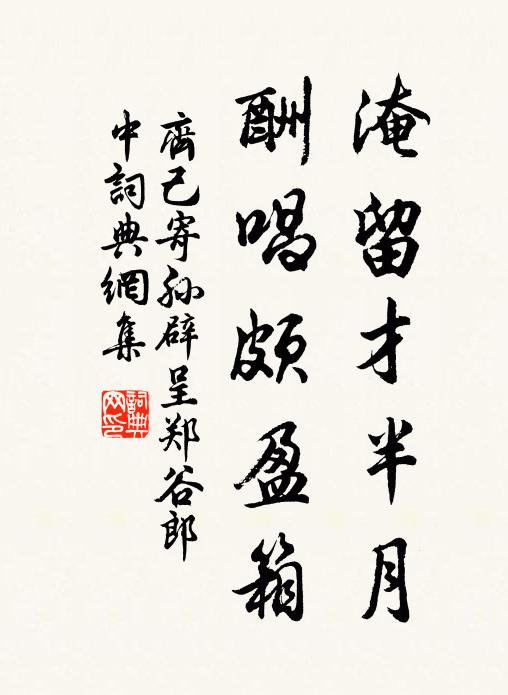 淹留才半月
酬唱頗盈箱
齊己寄孙辟呈郑谷郎
中詞典網集
詞典
网印